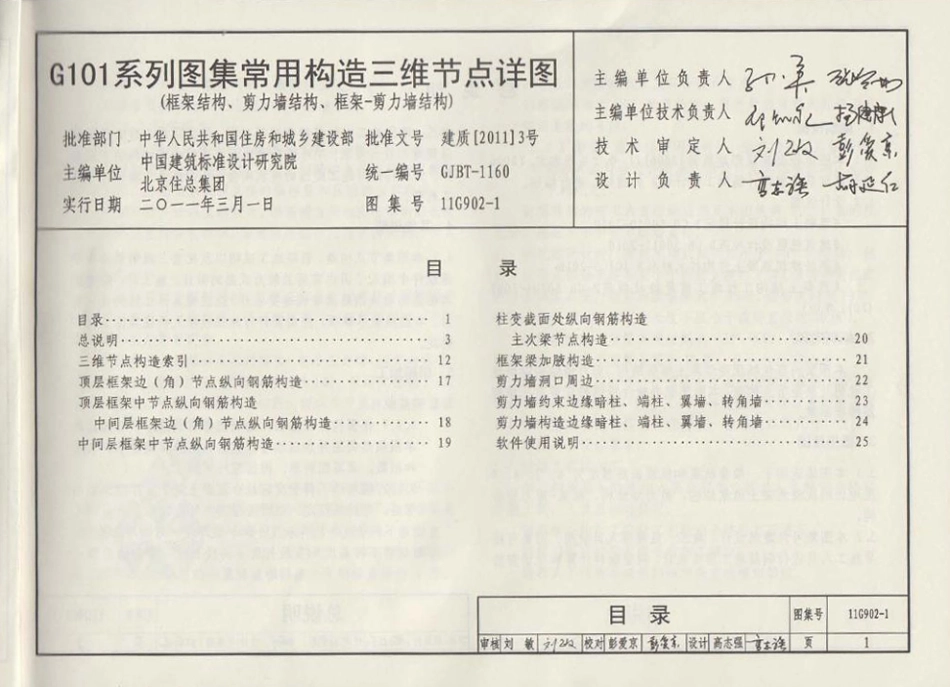 G101系列图集常用构造三维节点详图
(框架结构、剪力墙结构、框架-剪力墙结构)
批准部门 中华人民共和国住房和城乡建设部 批准文号 建质[2011]3号
主编单位 中国建筑标准设计研究院
北京住总集团
统一编号 GJBT-1160
实行日期 二〇一一年三月一日 图集号 11G902-1
主编单位负责人
主编单位技术负责人
技术审定人
设计负责人
目 录
目录 1
总说明 3
三维节点构造索引 12
顶层框架边(角)节点纵向钢筋构造 17
顶层框架中节点纵向钢筋构造
中间层框架边(角)节点纵向钢筋构造 18
中间层框架中节点纵向钢筋构造 19
柱变截面处纵向钢筋构造
主次梁节点构造 20
框架梁加腋构造 21
剪力墙洞口周边 22
剪力墙约束边缘暗柱、端柱、翼墙、转角墙 23
剪力墙构造边缘暗柱、端柱、翼墙、转角墙 24
软件使用说明 25
目录 图集号 11G902-1
审核 刘敏 校对 彭爱京 设计 高志强 页 1